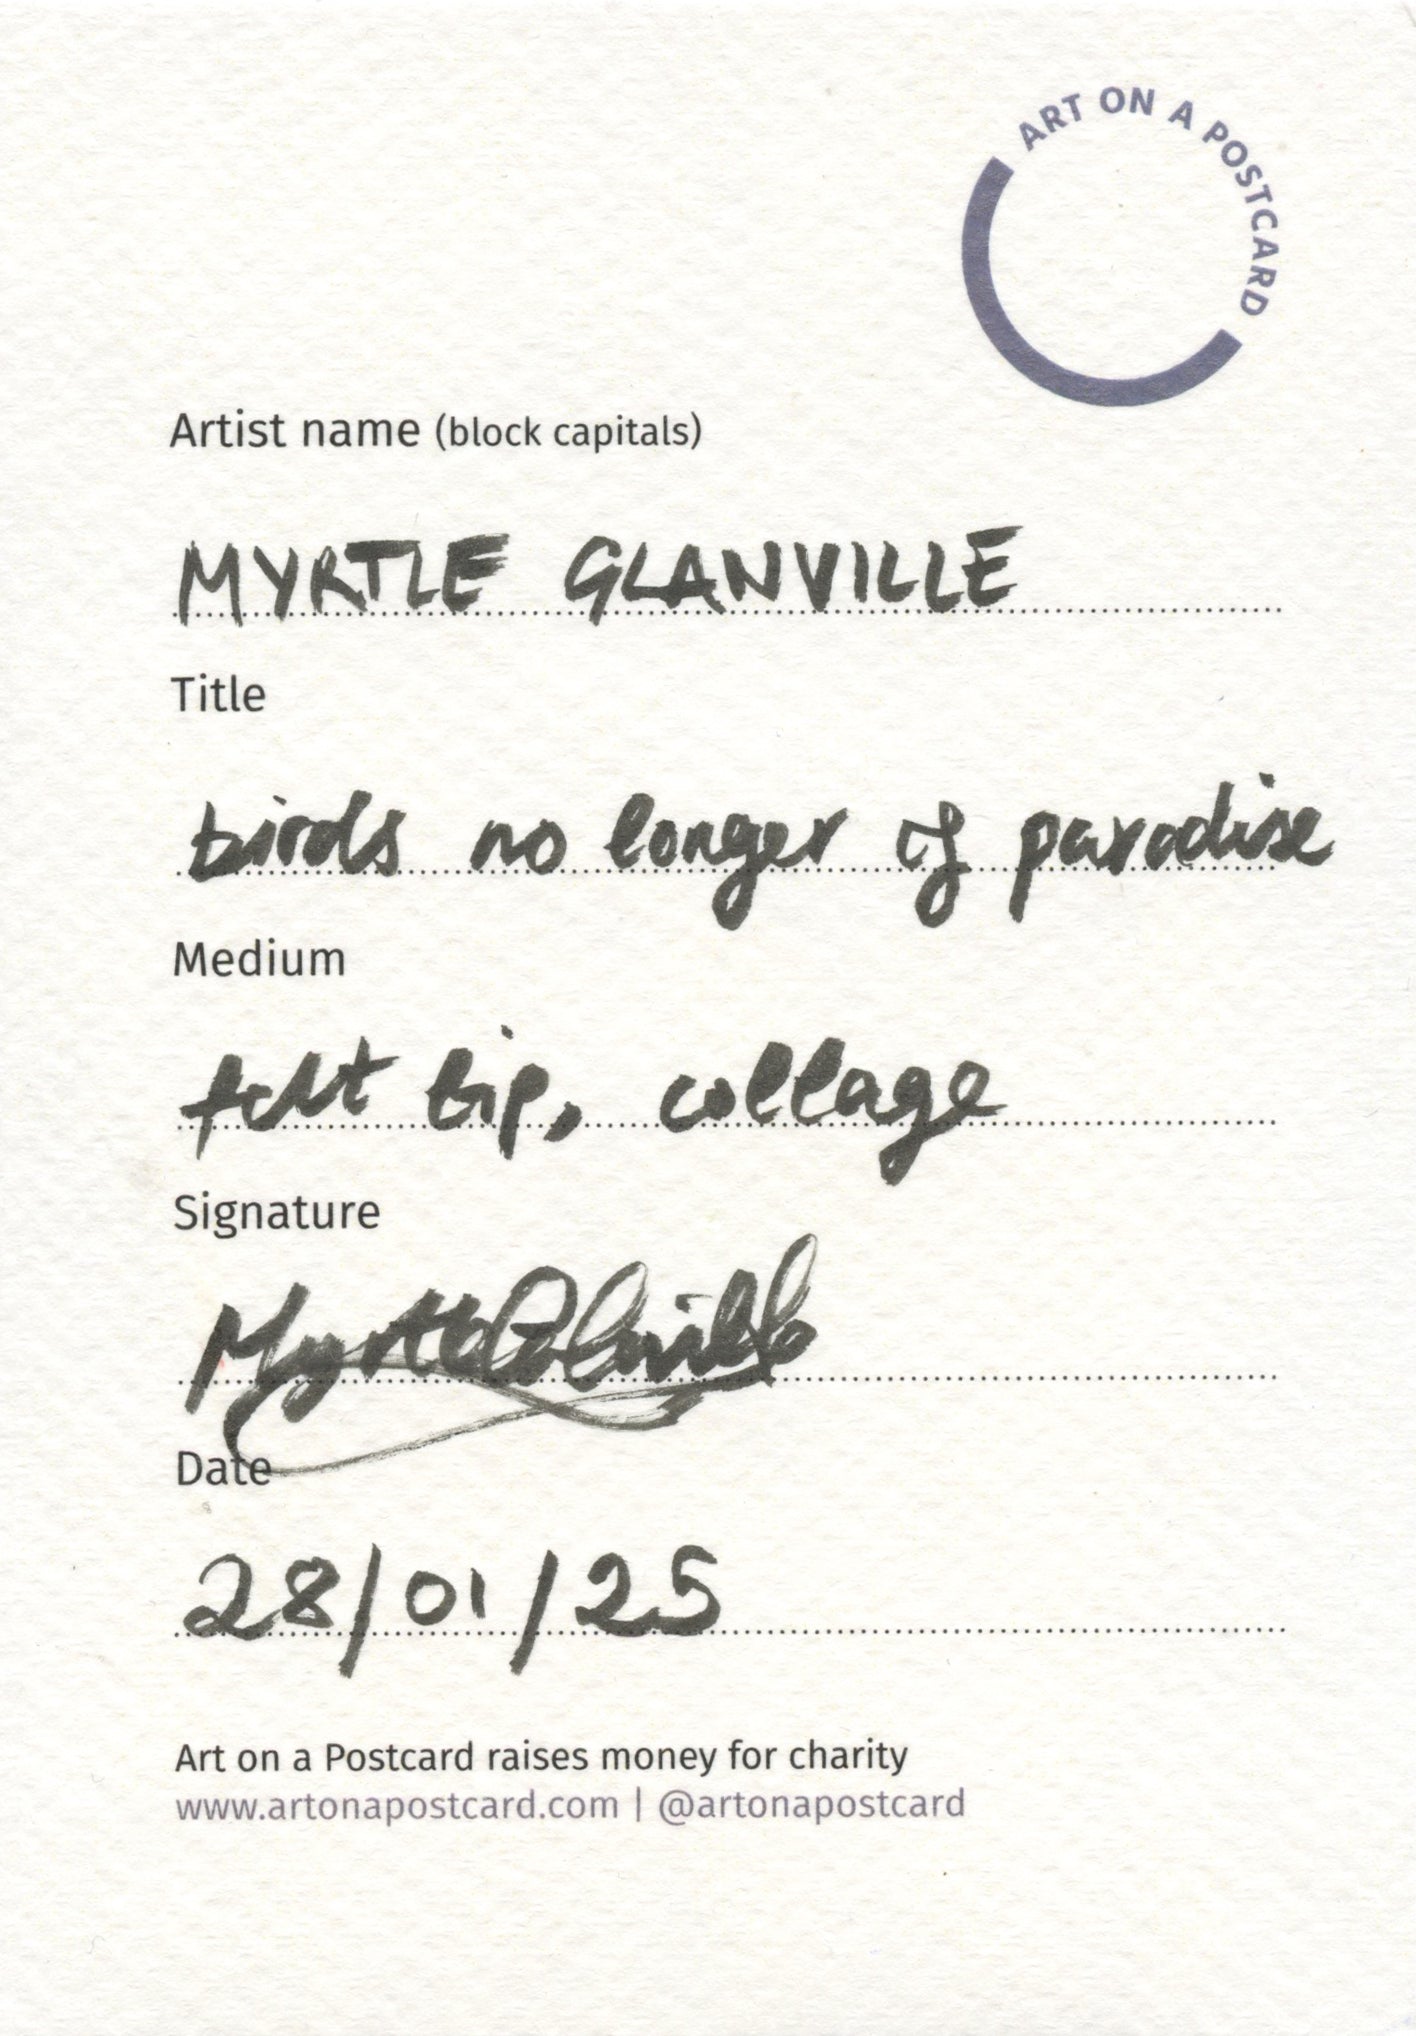 ART ON A POSTCARD
Artist name (block capitals)
MYRTLE GLANVILLE
Title
birds no longer of paradise
Medium
felt tip, collage
Signature
Myrtle Glanville
Date
28/01/25
Art on a Postcard raises money for charity
www.artonapostcard.com | @artonapostcard